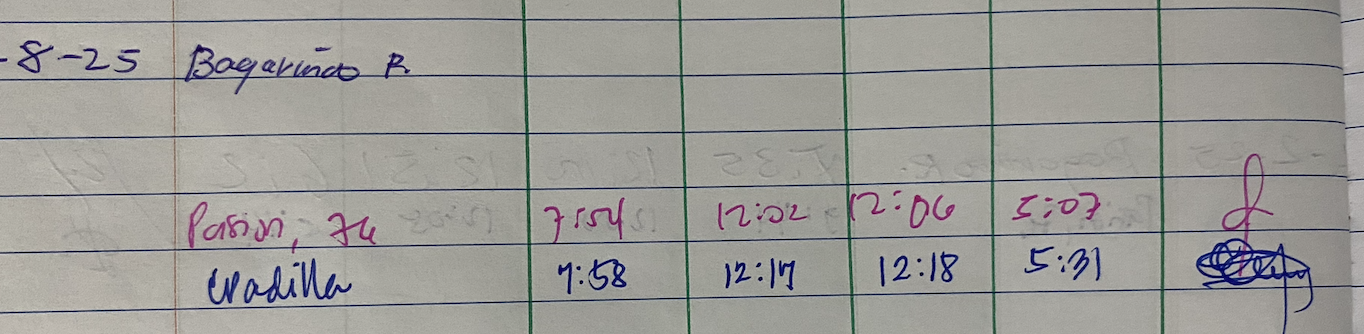 -8-25 Bagariñao R.
Pasion, 7:54 12:02 12:06 5:07
7:58 12:17 12:18 5:31